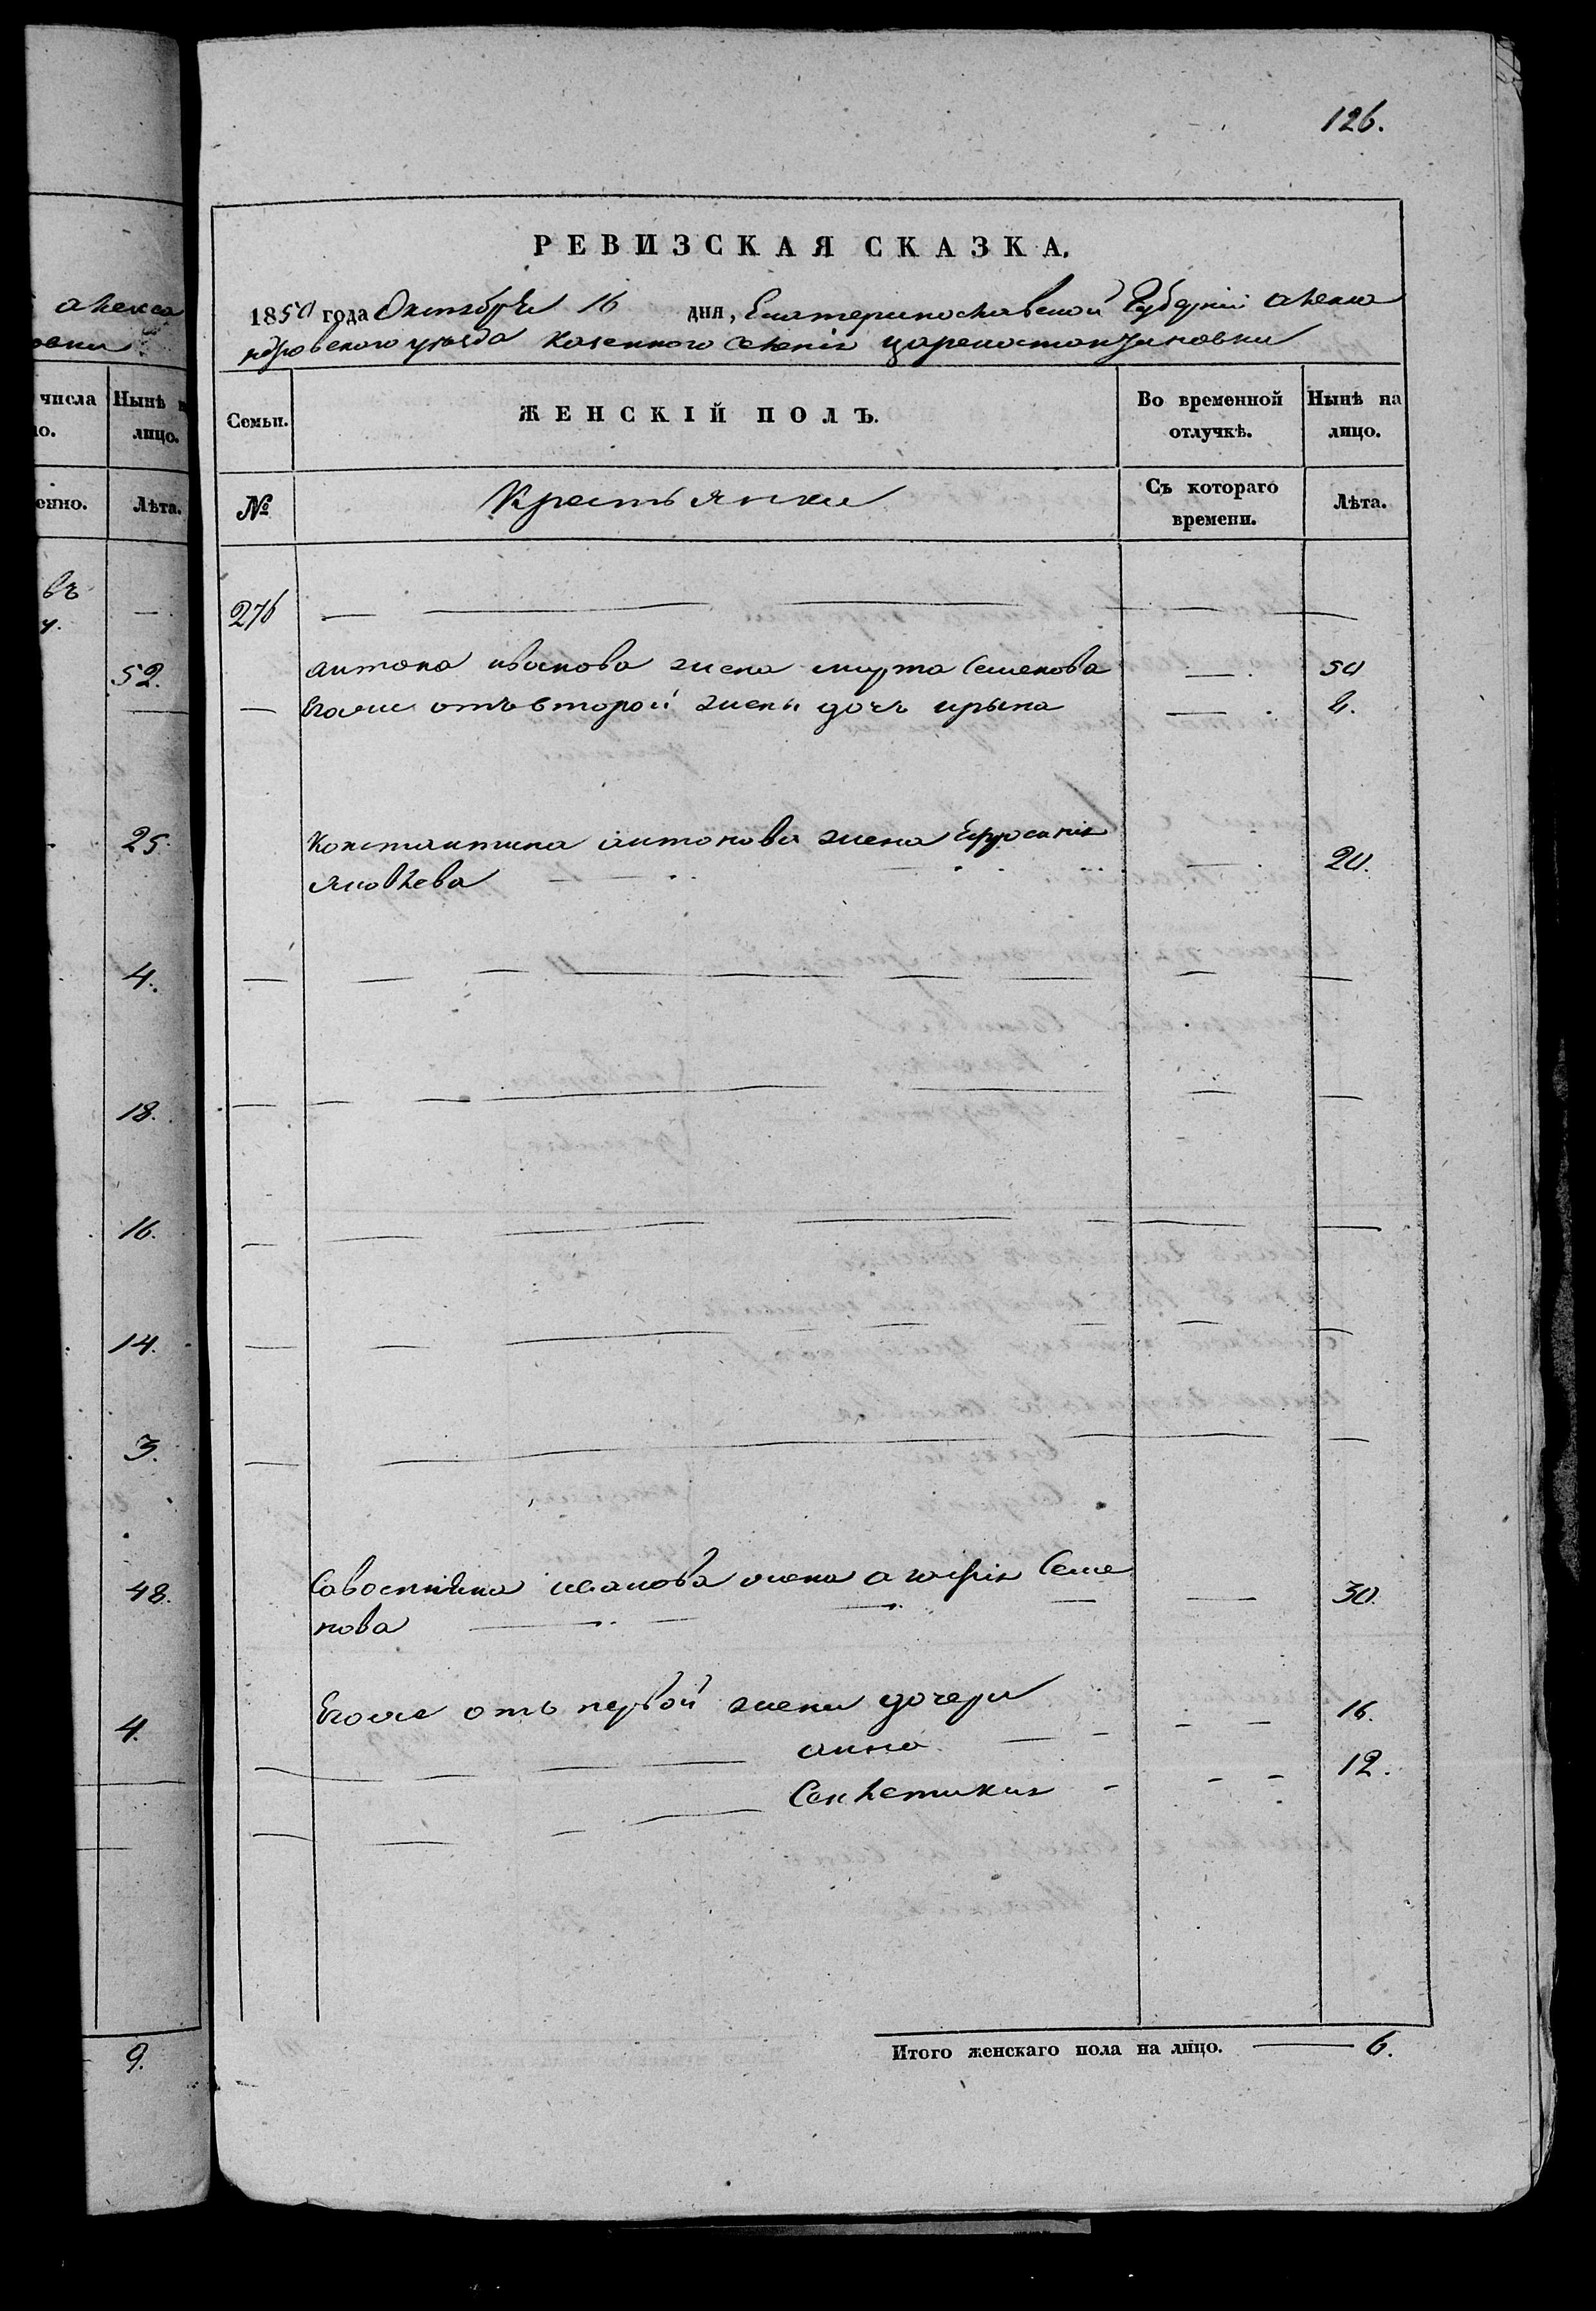 126.
алекса
числа
Нынѣ
лицо.
енно.
Лѣта.
въ
52.
25.
4.
18.
16.
14.
3.
48.
4.
9.
РЕВИЗСКАЯ СКАЗКА.
1850 года Октября 16 дня, Екатеринославской Губерніи алекса
ндровского уѣзда казенного селенія цареконстантиновки
Семьи.
ЖЕНСКІЙ ПОЛЪ.
Во временной
отлучкѣ.
Нынѣ на
лицо.
№
Крестьянки
Съ котораго
времени.
Лѣта.
276
антона иванова жена марта Семенова 50
Егоже отъ второй жены дочь ирына
Константина антонова жена Ефросинія
яковлева 20.
Савостіяна иванова жена агафія Семе
нова 30.
Егоже отъ первой жены дочери
анна 16.
Сенклетикия 12.
Итого женскаго пола на лицо. 6.